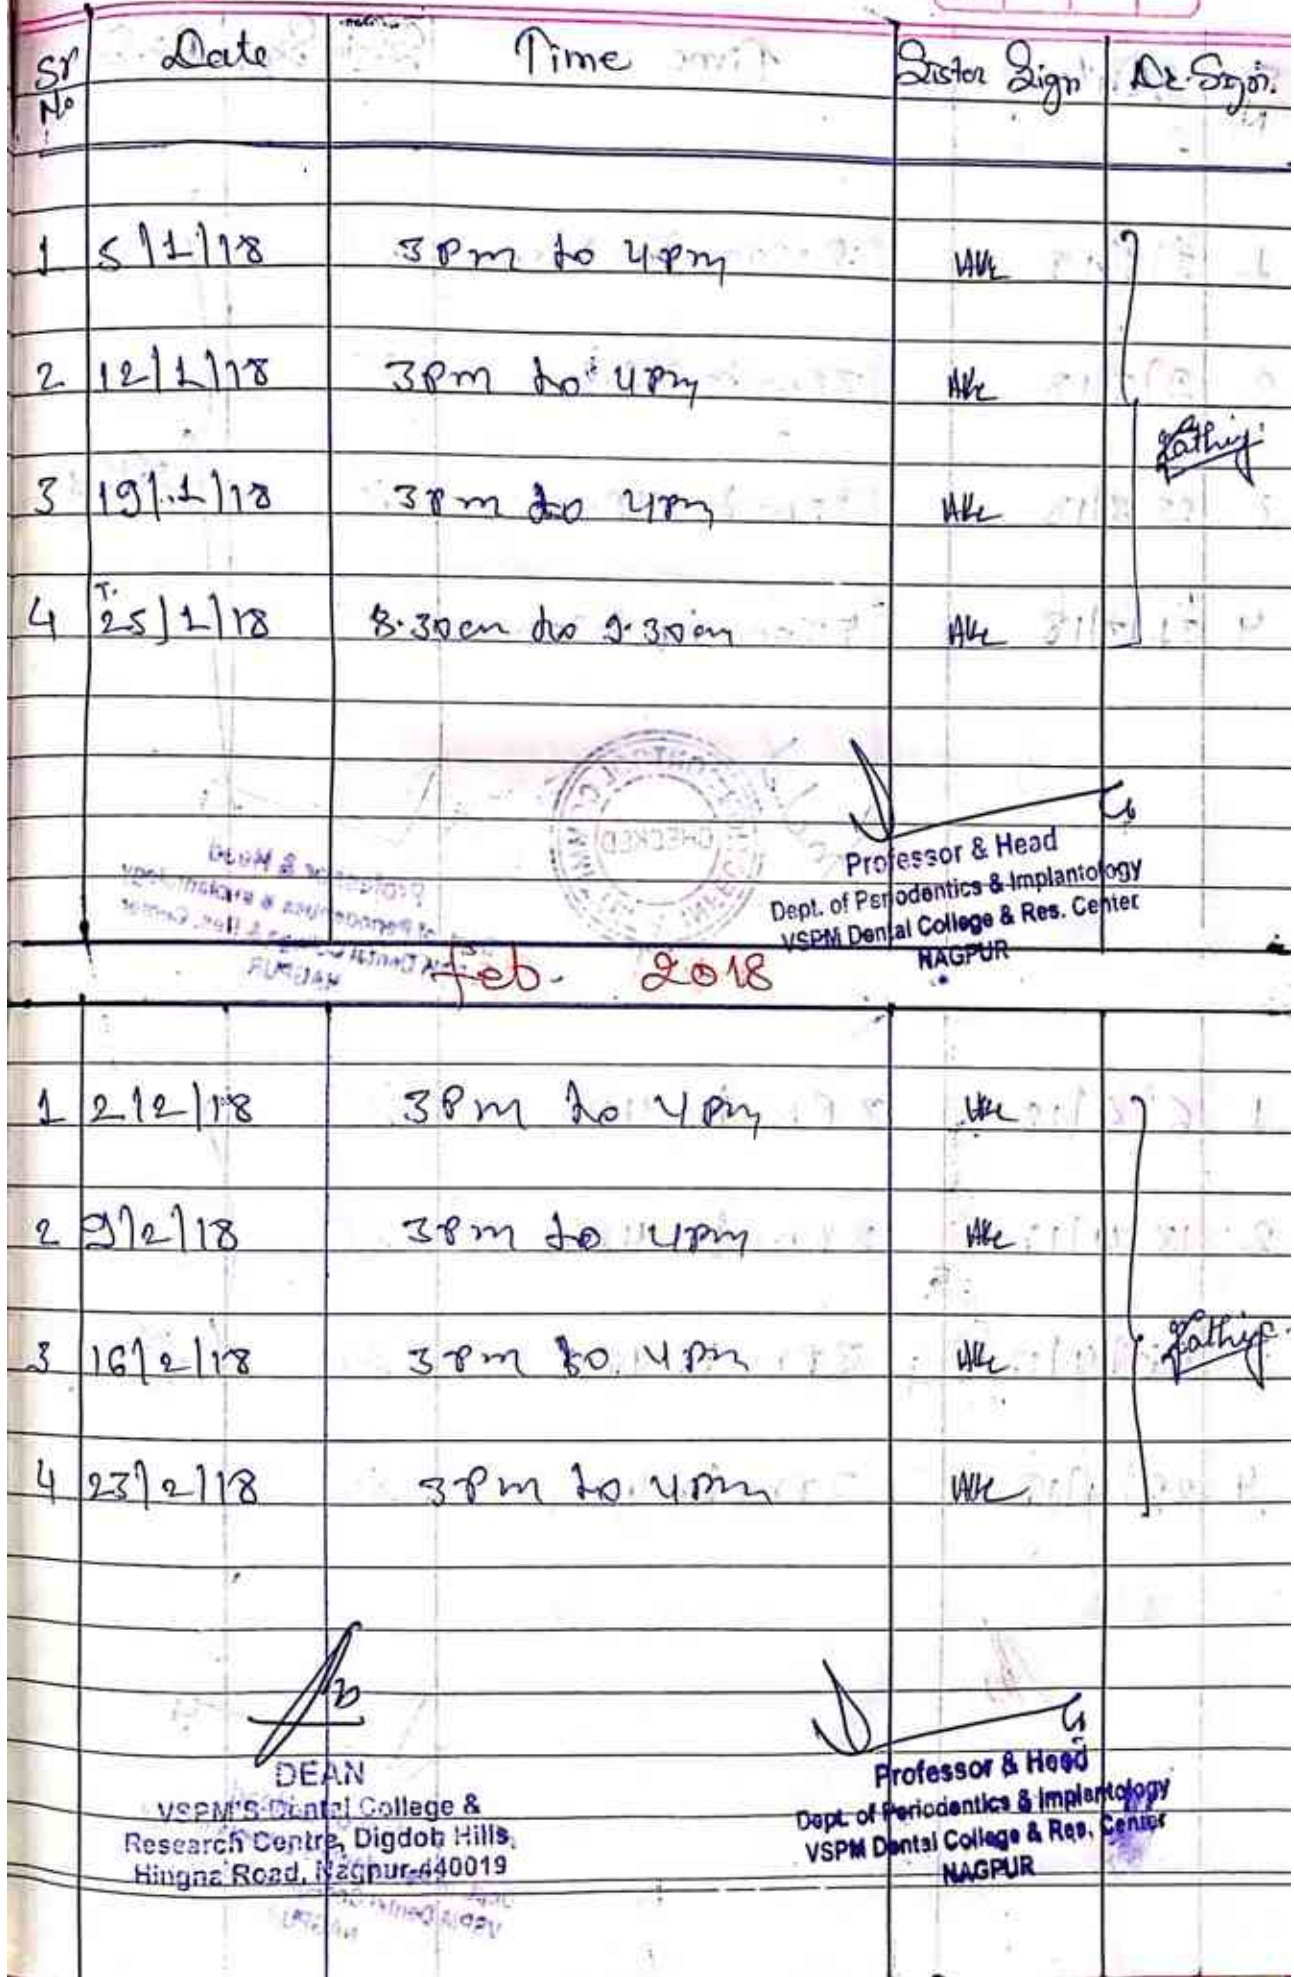 Sr No Date Time Sister Sign Dr. Sign.
1 5/1/18 3pm to 4pm
2 12/1/18 3pm to 4pm
3 19/1/18 3pm to 4pm
4 T. 25/1/18 8.30am to 9.30am
CHECKED
Professor & Head
Dept. of Periodontics & Implantology
VSPM Dental College & Res. Center
NAGPUR
feb. 2018
1 2/2/18 3pm to 4pm
2 9/2/18 3pm to 4pm
3 16/2/18 3pm to 4pm
4 23/2/18 3pm to 4pm
DEAN
VSPM'S Dental College &
Research Centre, Digdoh Hills,
Hingna Road, Nagpur-440019
Professor & Head
Dept. of Periodentics & Implantology
VSPM Dental College & Res. Center
NAGPUR